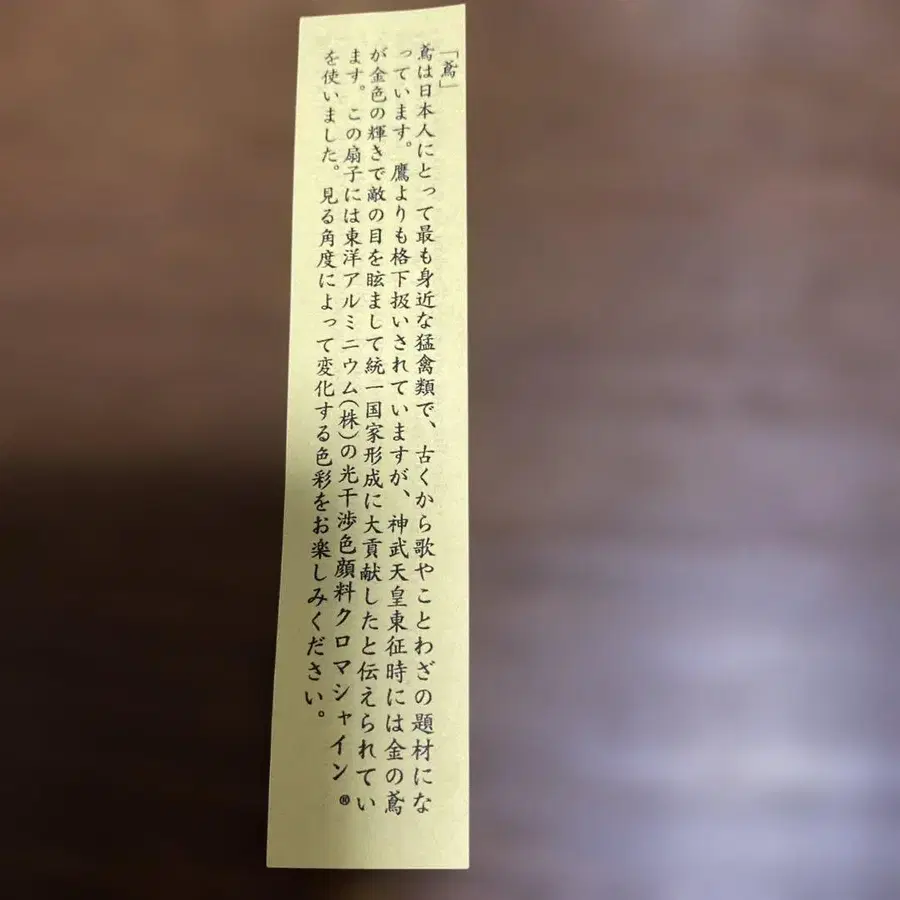 「鳶」
鳶は日本人にとって最も身近な猛禽類で、古くから歌やことわざの題材にな
っています。鷹よりも格下扱いされていますが、神武天皇東征時には金の鳶
が金色の輝きで敵の目を眩まして統一国家形成に大貢献したと伝えられてい
ます。この扇子には東洋アルミニウム(株)の光干渉色顔料クロマシャイン®
を使いました。見る角度によって変化する色彩をお楽しみください。